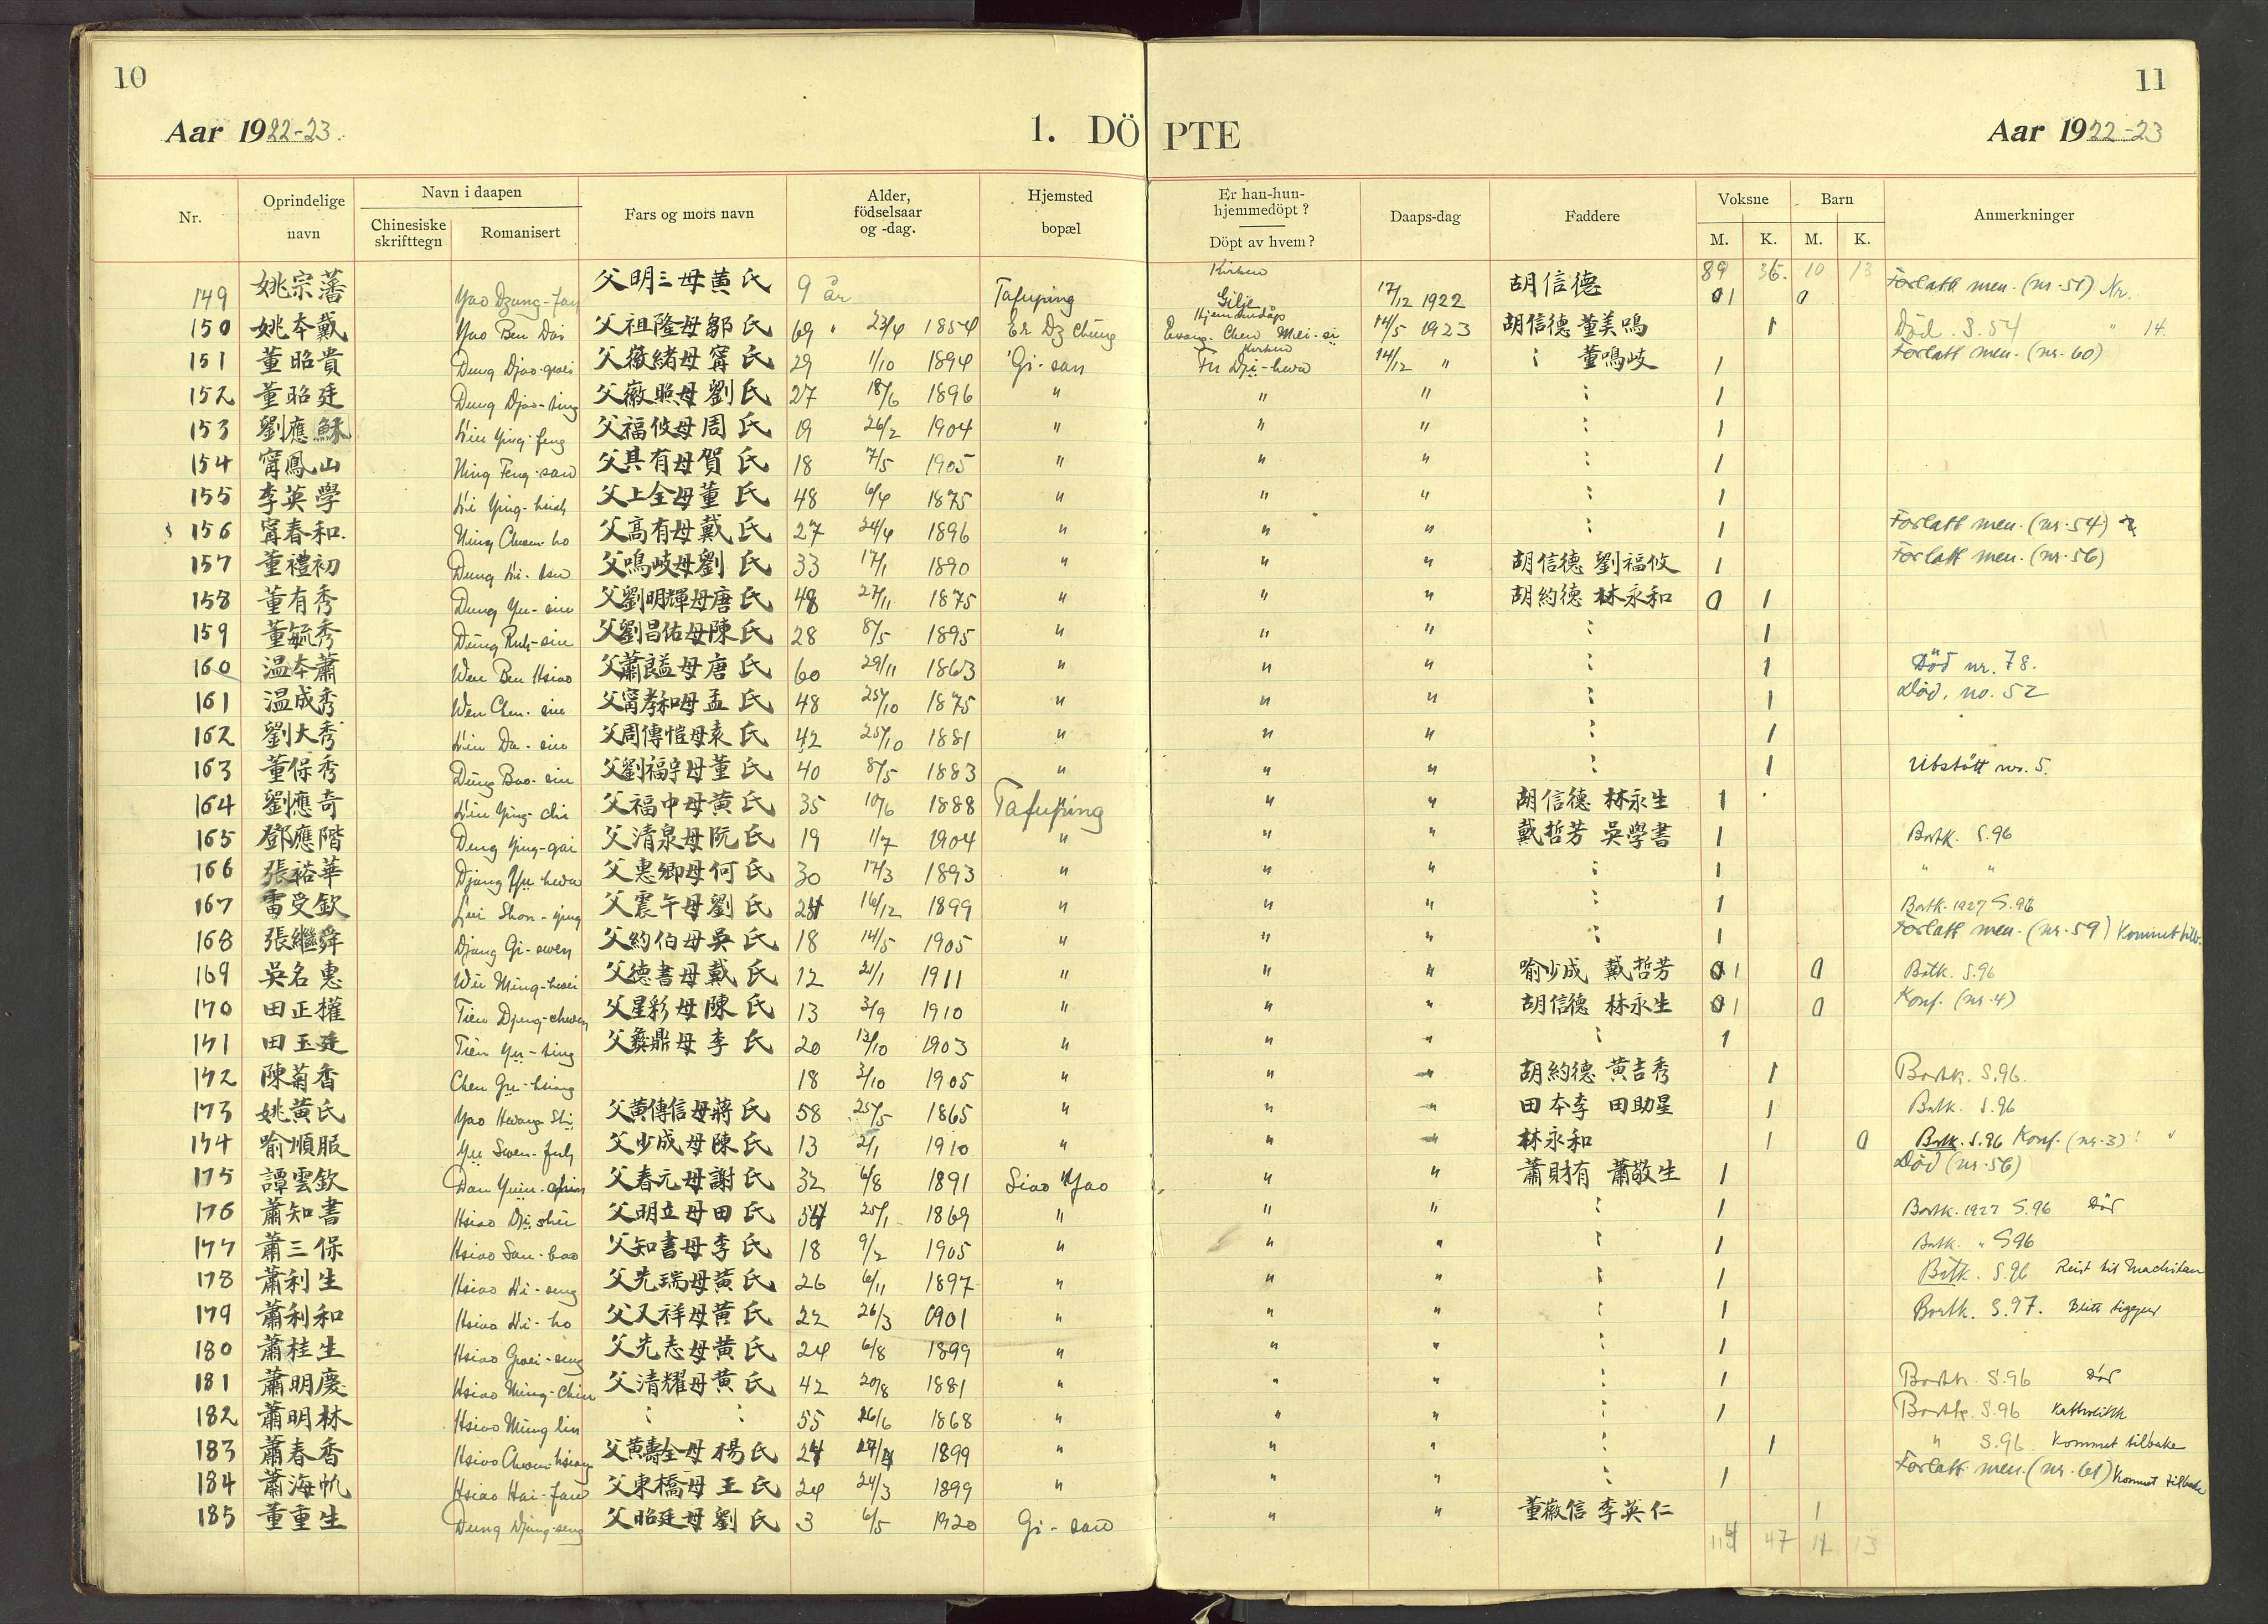 10
11
Aar 1922-23.
1. DÖPTE
Aar 1922-23
Nr. Oprindelige navn Navn i daapen Chinesiske skrifttegn Romanisert Fars og mors navn Alder, födselsaar og -dag. Hjemsted bopæl Er han-hun-hjemmedöpt? Döpt av hvem? Daaps-dag Faddere Voksne M. K. Barn M. K. Anmerkninger
89 36. 10 13
149 姚宗藩 Yao Dzung-fan 父明三母黄氏 9 år Tafuping Kirken Gilje 17/12 1922 胡信德 0 1 0 Forlatt men. (nr. 51) Nr.
150 姚本戴 Yao Ben Dai 父祖隆母鄒氏 69 " 23/4 1854 Er Dz Chung Hjemmedöp Evang. Chen Mei-si 14/5 1923 胡信德 董美鳴 1 Död. S. 54 " 14.
151 董昭貴 Dung Djao-gwei 父薇緒母寗氏 29 1/10 1894 Gi-san Kirken Fu Dzi-hwa 14/12 " : 董鳴岐 1 Forlatt men. (nr. 60)
152 董昭廷 Dung Djao-ting 父薇照母劉氏 27 18/6 1896 " " " : 1
153 劉應穌 Liu Ying-feng 父福攸母周氏 19 26/2 1904 " " " : 1
154 寗鳳山 Ning Feng-san 父具有母賀氏 18 7/5 1905 " " " : 1
155 李英學 Li Ying-hsioh 父上全母董氏 48 6/4 1875 " " " : 1
156 寗春和. Ning Chwen-ho 父高有母戴氏 27 24/4 1896 " " " : 1 Forlatt men. (nr. 54)
157 董禮初 Dung Li-tsu 父鳴岐母劉氏 33 17/1 1890 " " " 胡信德 劉福攸 1 Forlatt men. (nr. 56)
158 董有秀 Dung Yu-siu 父劉明輝母唐氏 48 27/11 1875 " " " 胡約德 林永和 0 1
159 董毓秀 Dung Ruh-siu 父劉昌佑母陳氏 28 8/5 1895 " " " : 1
160 温本蕭 Wen Ben Hsiao 父蕭良益母唐氏 60 29/11 1863 " " " : 1 Död nr. 78.
161 温成秀 Wen Chen-siu 父寗孝和母孟氏 48 25/10 1875 " " " : 1 Död. no. 52
162 劉大秀 Liu Da-siu 父周傳愷母袁氏 42 25/10 1881 " " " : 1
163 董保秀 Dung Bao-siu 父劉福宇母董氏 40 8/5 1883 " " " : 1 Utstött nr. 5.
164 劉應奇 Liu Ying-chi 父福中母黄氏 35 10/6 1888 Tafuping " " 胡信德 林永生 1
165 鄧應階 Deng Ying-gai 父清泉母阮氏 19 1/7 1904 " " " 戴哲芳 吳學書 1 Bortk. S. 96
166 張裕華 Djang Yu-hwa 父惠卿母何氏 30 17/3 1893 " " " : 1 " "
167 雷受欽 Lui Shou- 父震午母劉氏 24 16/12 1899 " " " : 1 Bortk. 1927 S. 96
168 張繼舜 Djang Gi-swen 父約伯母吳氏 18 14/5 1905 " " " : 1 Forlatt men. (nr. 59) Kommet tilb.
169 吳名惠 Wu Ming-hwei 父德書母戴氏 12 21/1 1911 " " " 喻少成 戴哲芳 0 1 0 Bortk. S. 96
170 田正權 Tien Djeng-chwen 父星彩母陳氏 13 3/9 1910 " " " 胡信德 林永生 0 1 0 Konf. (nr. 4)
171 田玉廷 Tien Yu-ting 父彝鼎母李氏 20 13/10 1903 " " " : 1
172 陳菊香 Chen Gu-hsiang 18 3/10 1905 " " " 胡約德 黄吉秀 1 Bortk. S. 96.
173 姚黄氏 Yao Hwang Shi 父黄傳信母蔣氏 58 25/5 1865 " " " 田本李 田助星 1 Bortk. S. 96
174 喻順服 Yu Swen-fuh 父少成母陳氏 13 2/1 1910 " " " 林永和 1 0 Bortk. S. 96 Konf. (nr. 3)!
175 譚雲欽 Dan Yuin-chin 父春元母謝氏 32 6/8 1891 Siao Yao " " 蕭財有 蕭敬生 1 Död (nr. 56)
176 蕭知書 Hsiao Dzi-shu 父明立母田氏 54 25/1 1869 " " " : 1 Bortk. 1927 S. 96 Död
177 蕭三保 Hsiao San-bao 父知書母李氏 18 9/2 1905 " " " : 1 Bortk. " S 96
178 蕭利生 Hsiao Li-seng 父先瑞母黄氏 26 6/11 1897 " " " : 1 Bortk. S. 96 Reist til
179 蕭利和 Hsiao Li-ho 父又祥母黄氏 22 26/3 1901 " " " : 1 Bortk. S. 97. Blitt tigger
180 蕭桂生 Hsiao Gwei-seng 父先志母黄氏 24 6/8 1899 " " " : 1
181 蕭明慶 Hsiao Ming-chin 父清耀母黄氏 42 20/8 1881 " " " : 1 Bortk. S. 96 Död
182 蕭明林 Hsiao Ming lin : : 55 26/6 1868 " " " : 1 Bortk. S. 96 Katholikk
183 蕭春香 Hsiao Chwen-hsiang 父黄壽全母楊氏 24 1899 " " " : 1 " S. 96. Kommet tilbake
184 蕭海帆 Hsiao Hai-fan 父東橋母王氏 24 24/3 1899 " " " : 1 Forlatt men. (nr. 61) Kommet tilbake
185 董重生 Dung Djung-seng 父昭廷母劉氏 3 6/5 1920 Gi-san " " 董薇信 李英仁 1
114 47 11 13